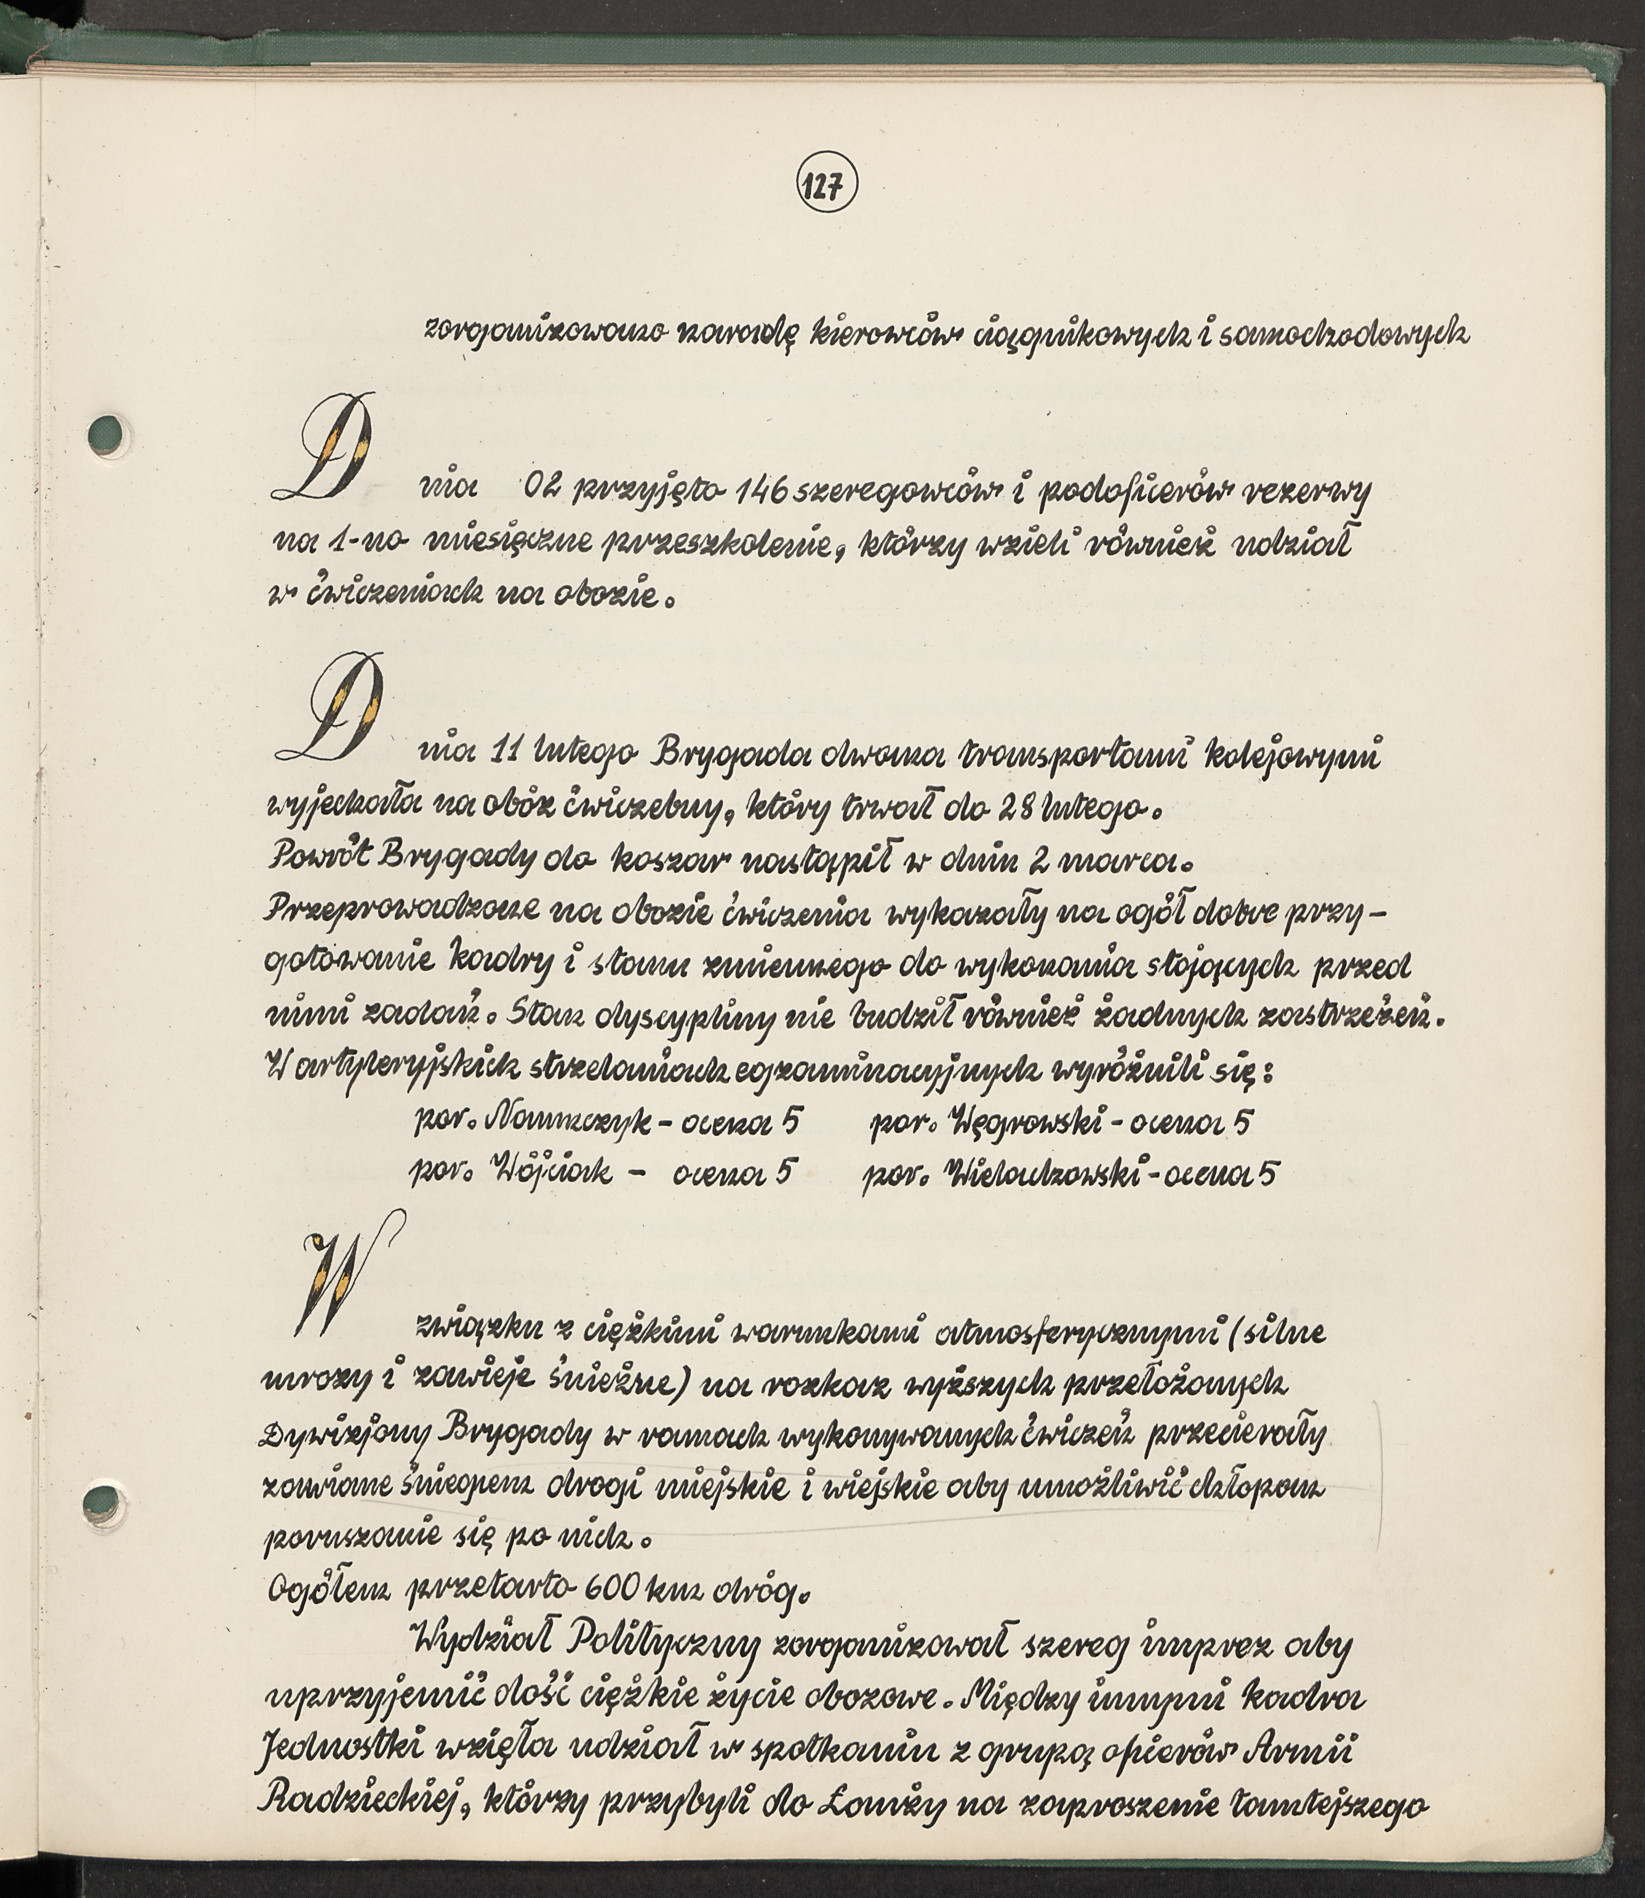 127
zorganizowano naradę kierowców ciągnikowych i samochodowych
Dnia 02 przyjęto 146 szeregowców i podoficerów rezerwy
na 1-no miesięczne przeszkolenie, którzy wzieli również udział
w ćwiczeniach na obozie.
Dnia 11 lutego Brygada dwoma transportami kolejowymi
wyjechała na obóz ćwiczebny, który trwał do 28 lutego.
Powrót Brygady do koszar nastąpił w dniu 2 marca.
Przeprowadzone na obozie ćwiczenia wykazały na ogół dobre przy-
gotowanie kadry i stanu zmiennego do wykonania stojących przed
nimi zadań. Stan dyscypliny nie budził również żadnych zastrzeżeń.
W artyleryjskich strzelaniach egzaminacyjnych wyróżnili się:
por. Namczyk - ocena 5 por. Węgrowski - ocena 5
por. Wójciak - ocena 5 por. Wielachowski - ocena 5
W związku z ciężkimi warunkami atmosferycznymi (silne
mrozy i zawieje śnieżne) na rozkaz wyższych przełożonych
Dywizjony Brygady w ramach wykonywanych ćwiczeń przecierały
zawiane śniegiem drogi miejskie i wiejskie aby umożliwić chłopom
poruszanie się po nich.
Ogółem przetarto 600 km dróg.
Wydział Polityczny zorganizował szereg imprez aby
uprzyjemić dość ciężkie życie obozowe. Między innymi kadra
Jednostki wzięła udział w spotkaniu z grupą oficerów Armii
Radzieckiej, którzy przybyli do Łomży na zaproszenie tamtejszego